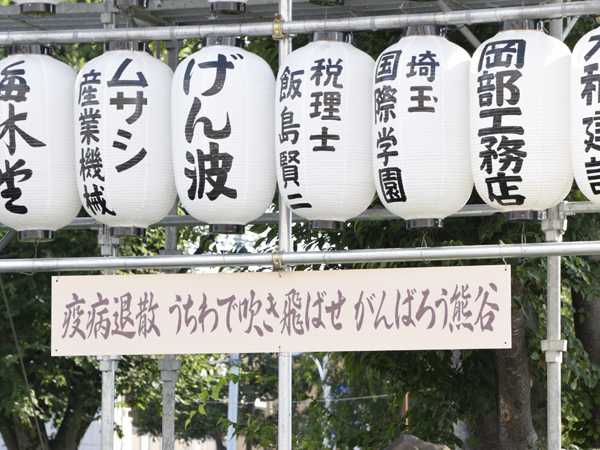 木堂
ムサシ
産業機械
げん波
税理士
飯島賢二
埼玉
国際学園
岡部工務店
和建設
疫病退散 うちわで吹き飛ばせ がんばろう熊谷